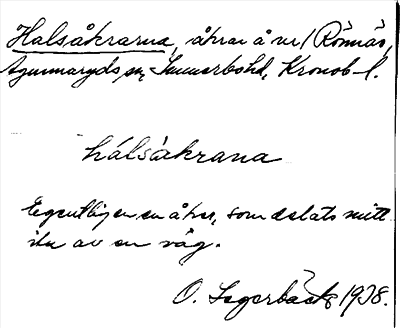 Halsåkrarna, åkrar å nr 1 Rönnäs,
Agunnaryds sn, Sunnerbo hd, Kronob. l.
hálsàkrana
Egentligen en åker, som delats mitt
itu av en väg.
O. Segerbäck 1938.